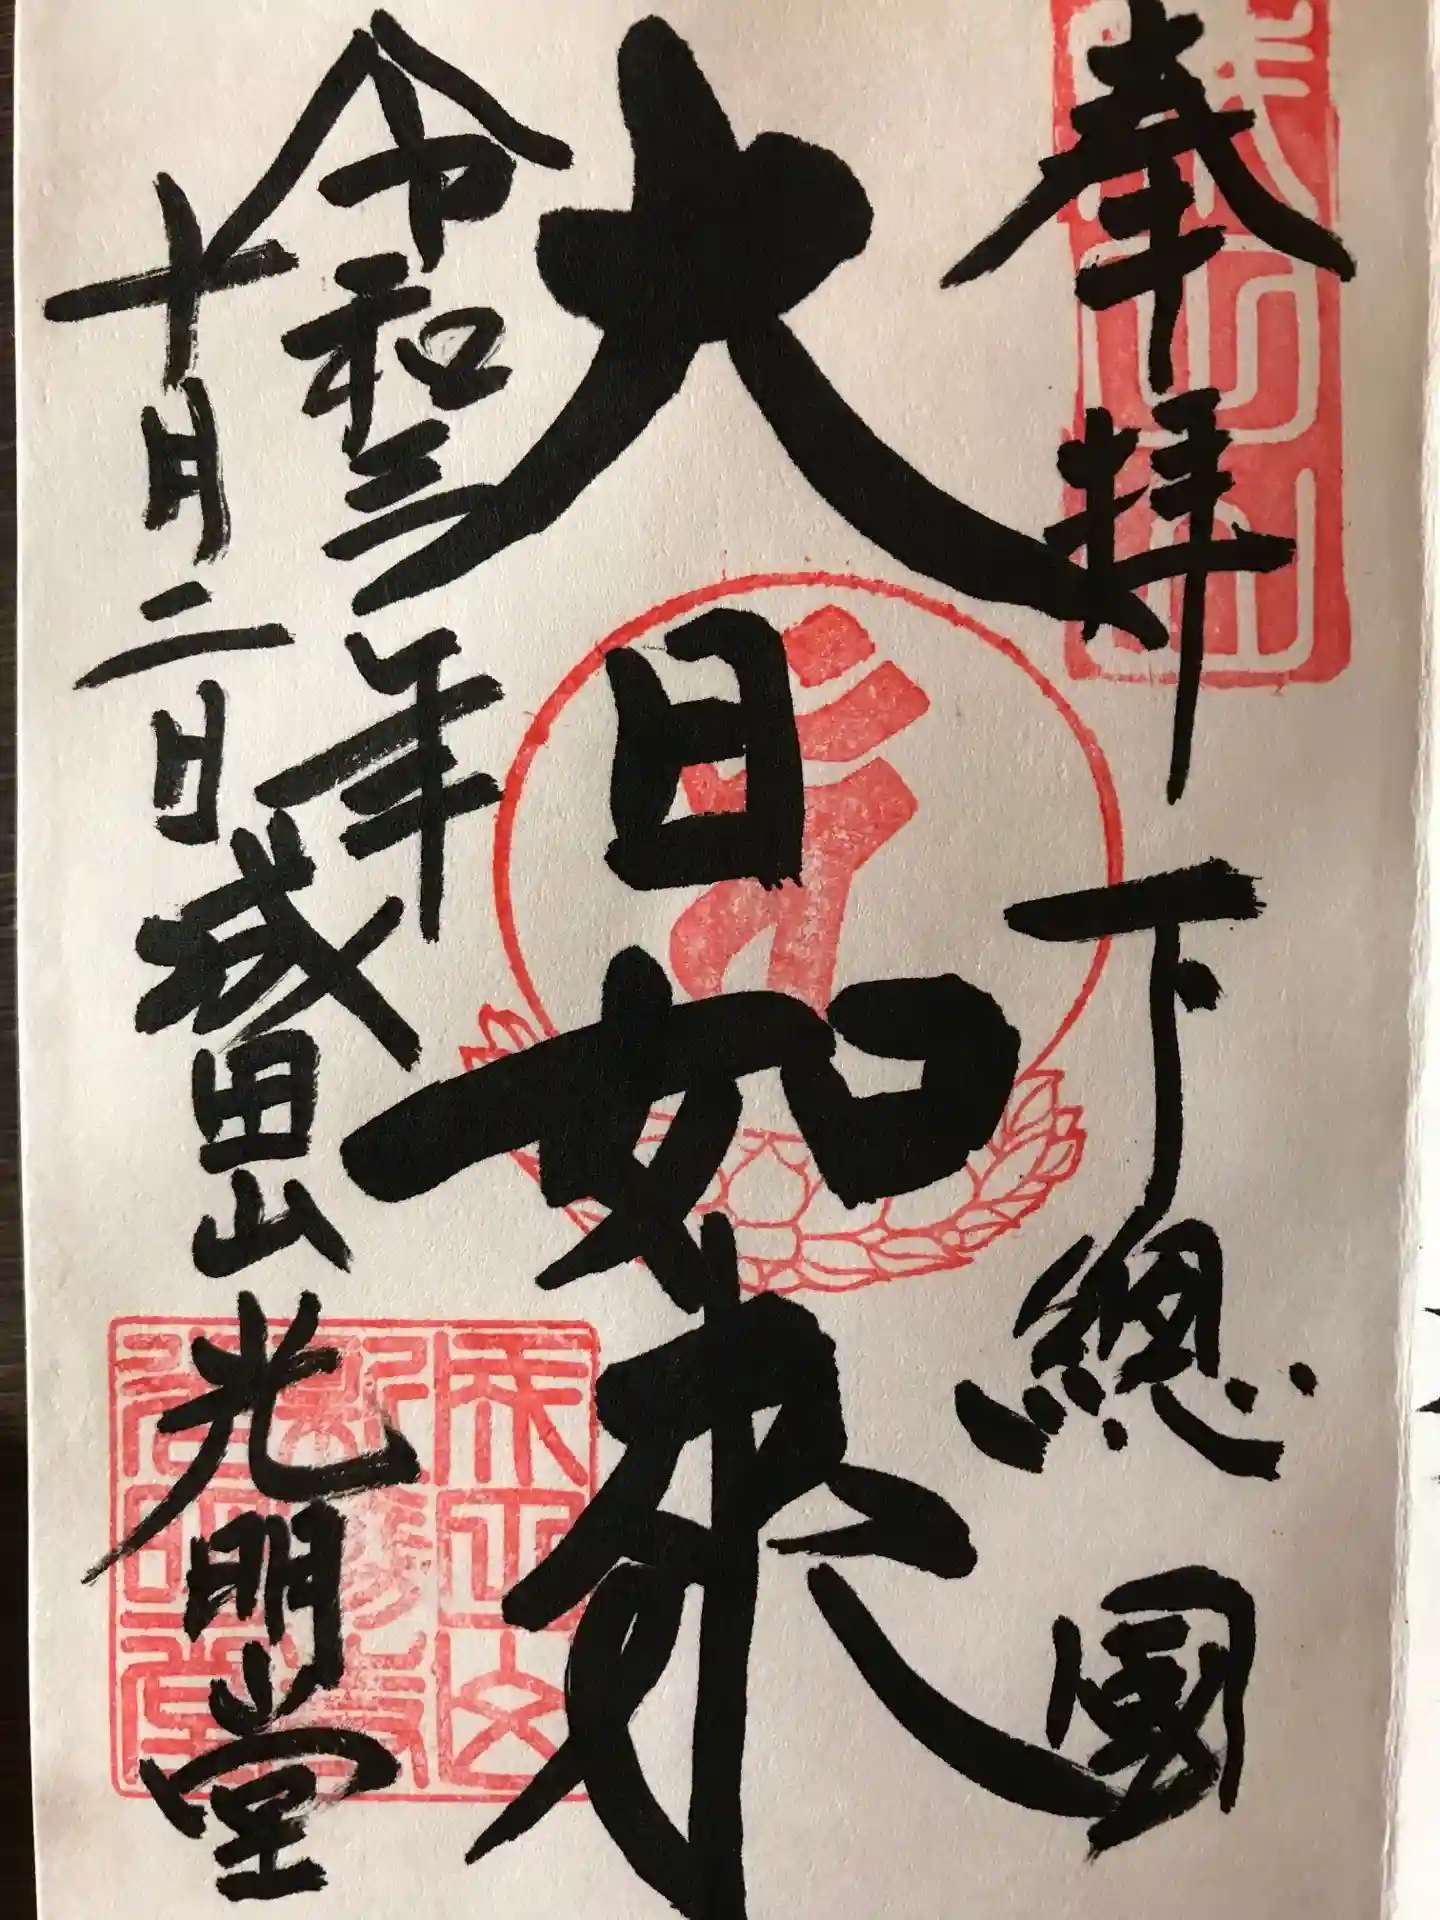 奉拝
下總國
大日如来
令和三年
十月二日
成田山光明堂